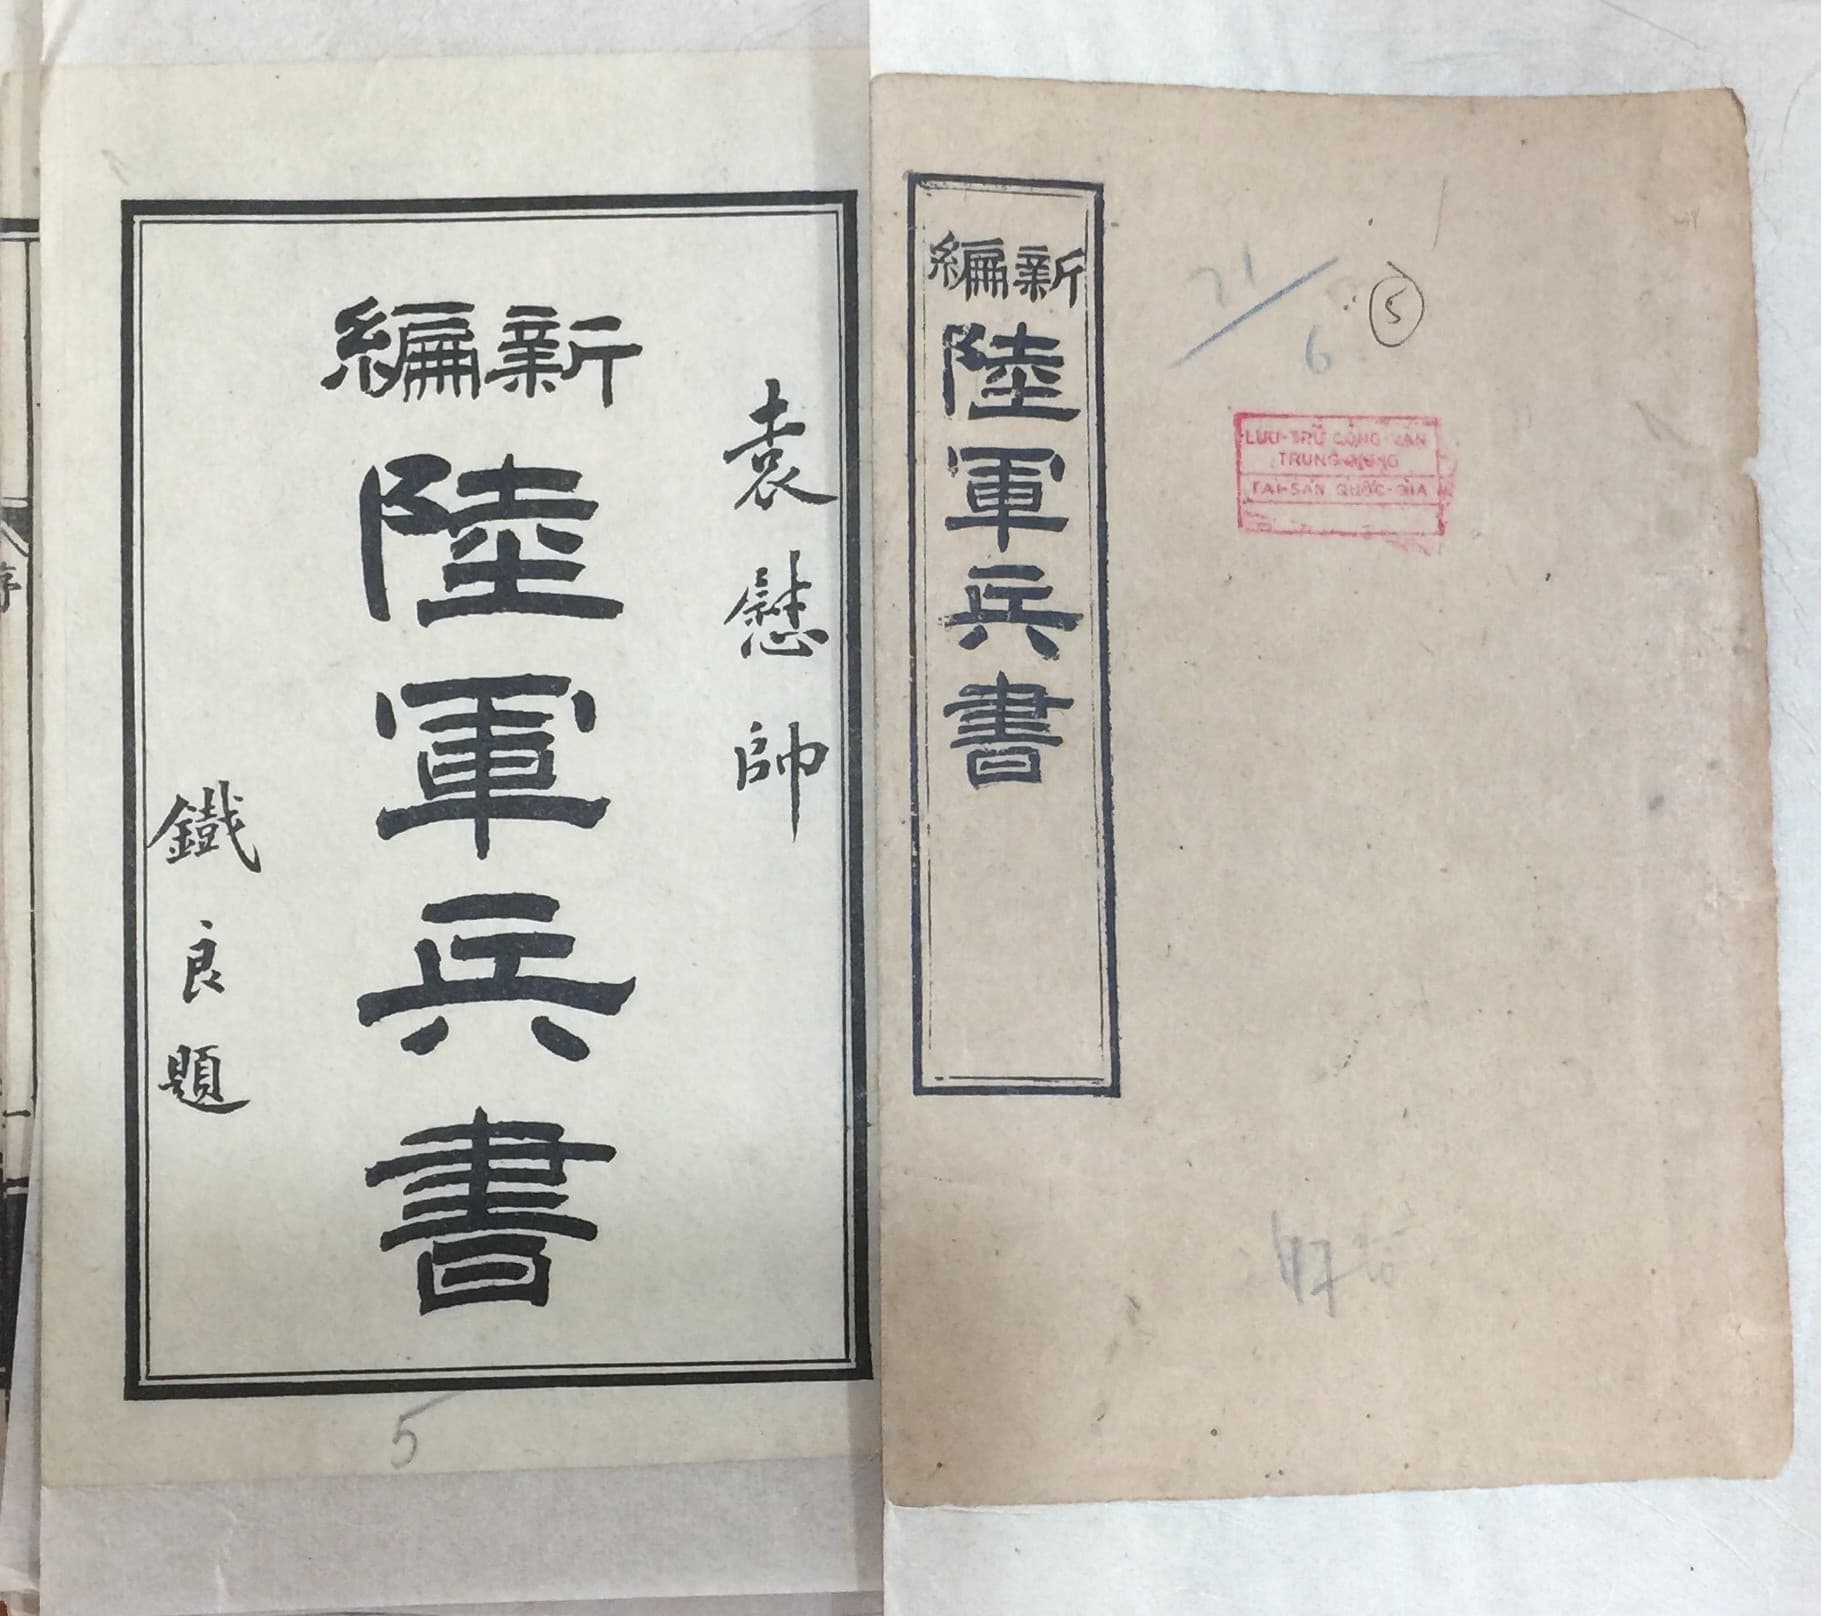 袁慰帥
新編
陸軍兵書
鐵良題
5
序
一
新編
陸軍兵書
21/6
5
LƯU-TRỮ CÔNG-VĂN
TRUNG-ƯƠNG
TÀI-SẢN QUỐC-GIA